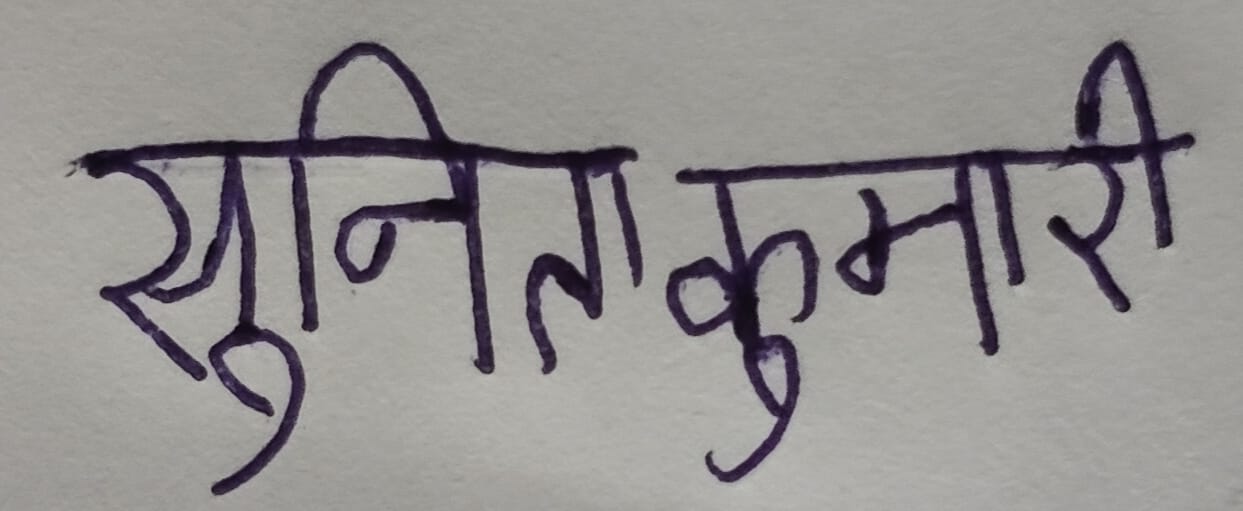 सुनिता कुमारी